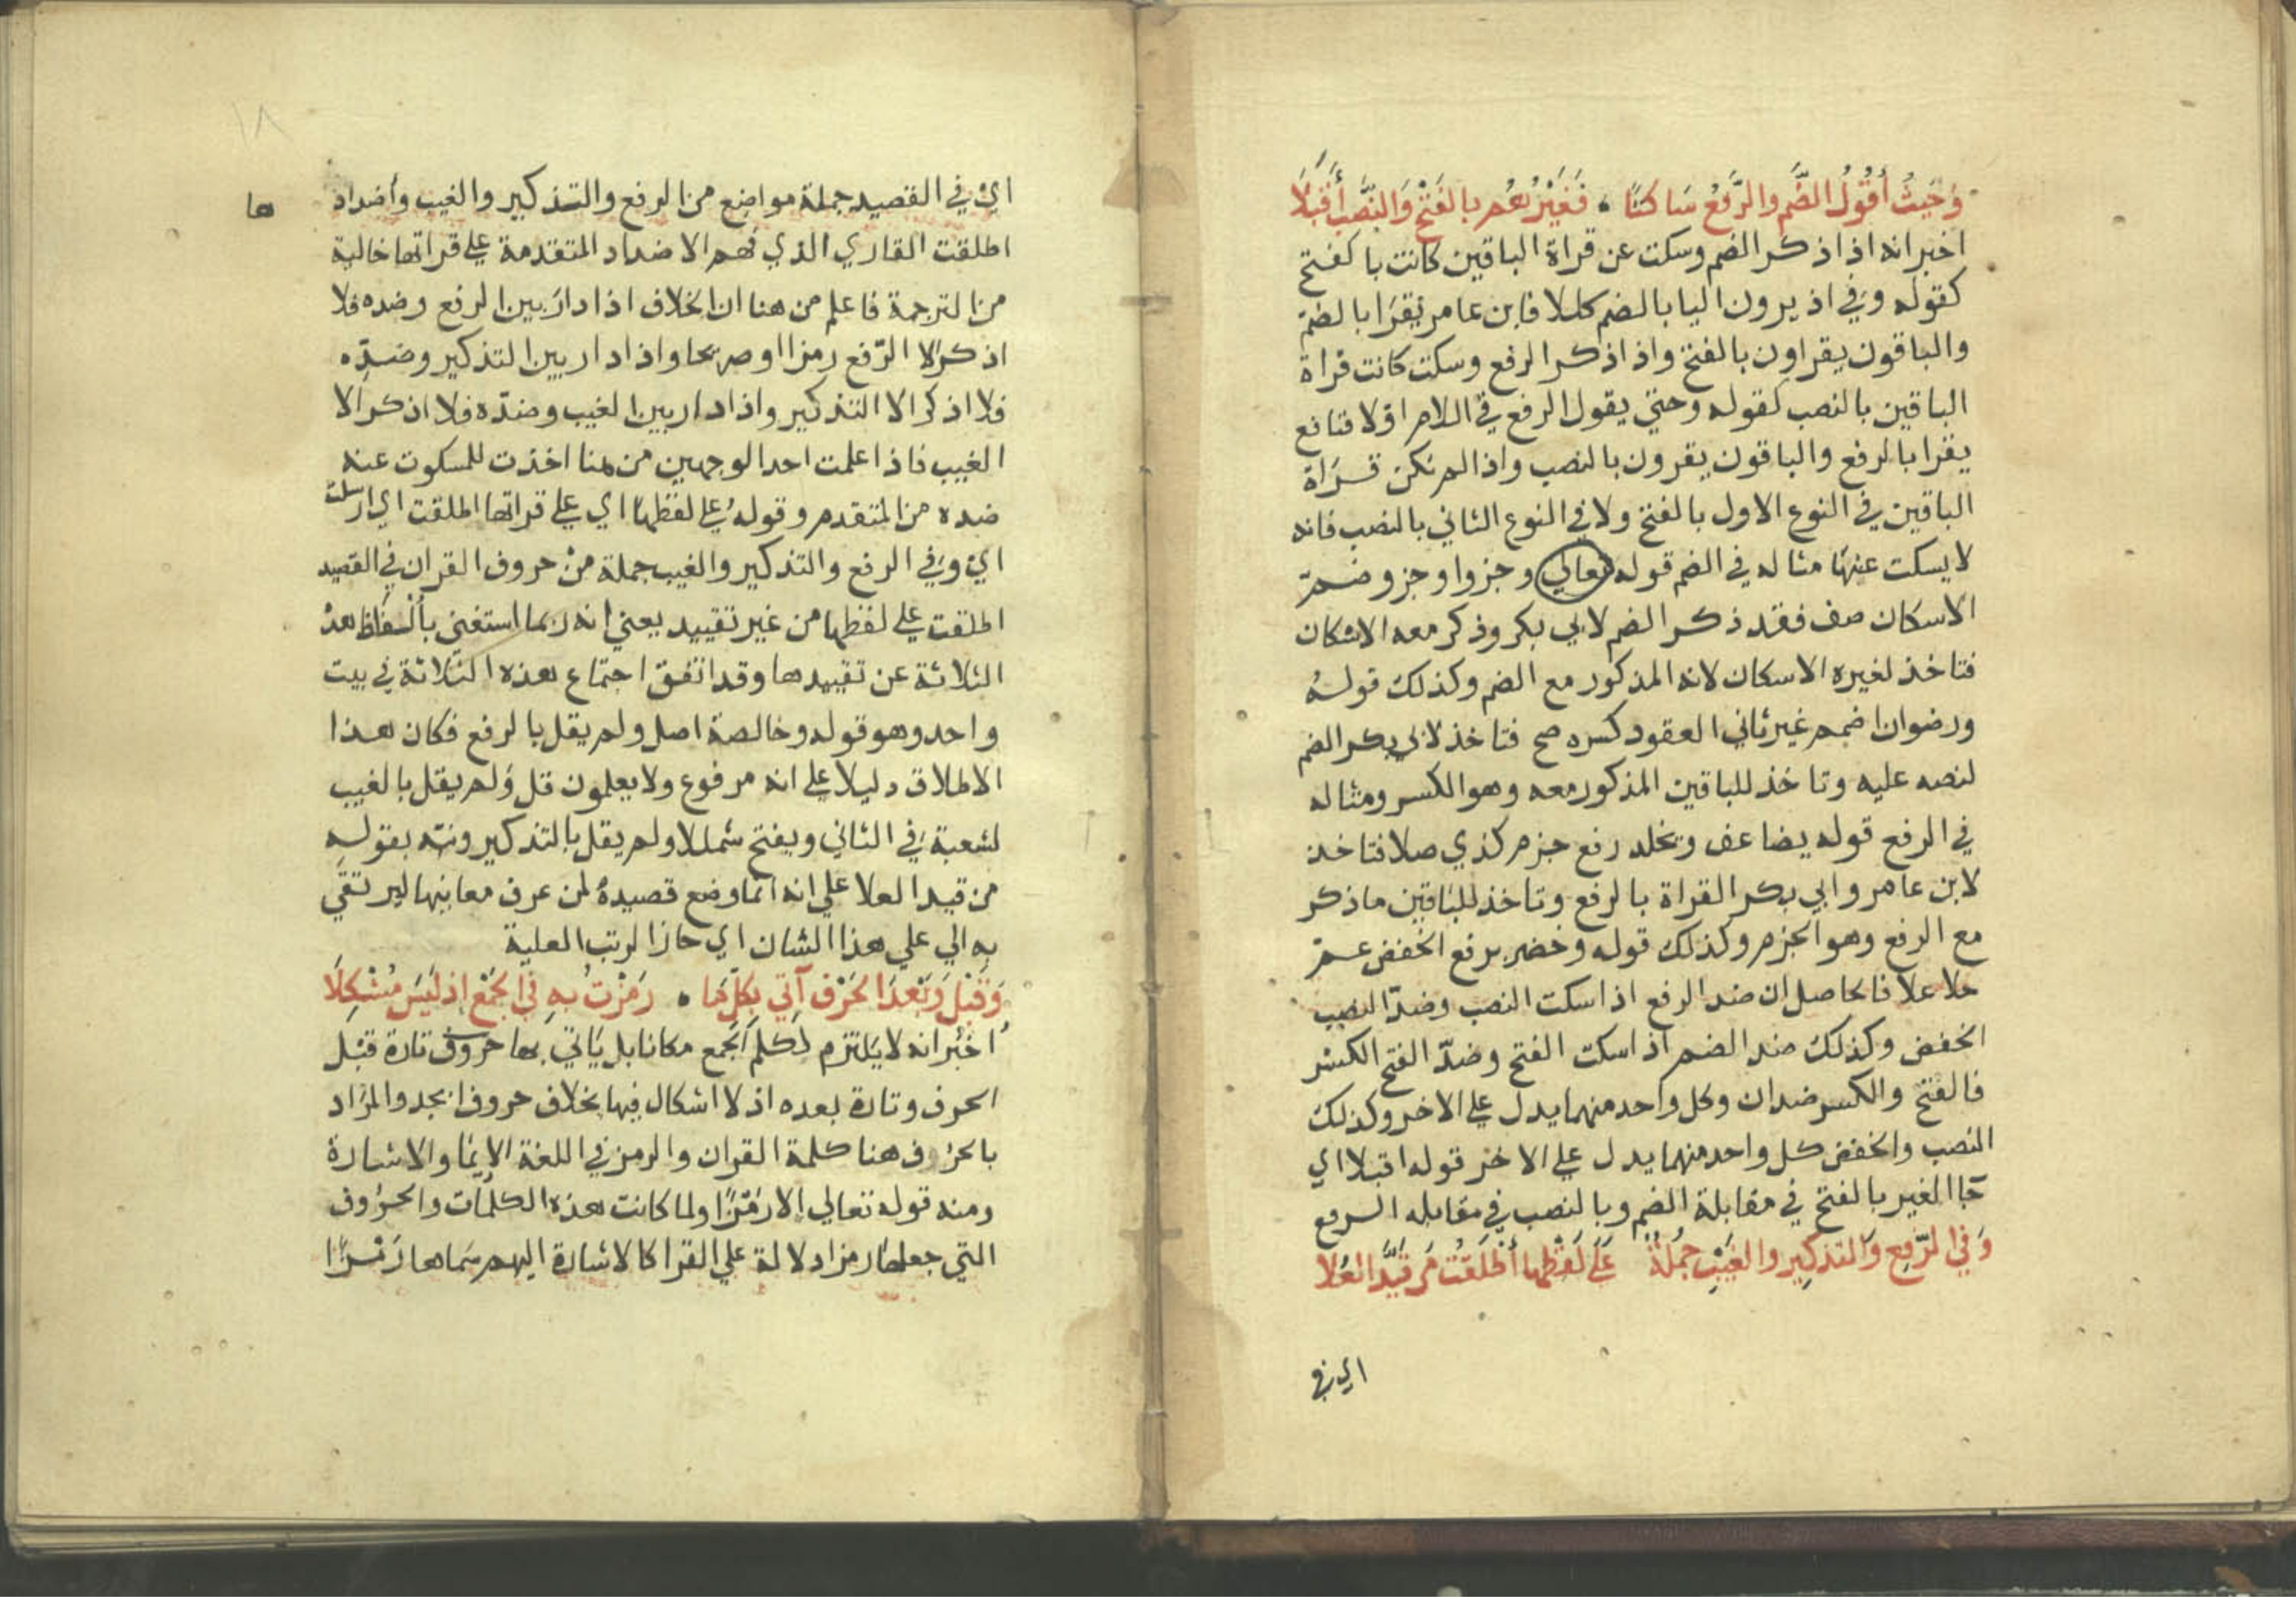 وَحَيثُ أقُولُ الضَّم والرَّفعُ سَاكتًا • فَغَيْرُهُم بالفَتْح وَالنَّصْبِ أَقْبَلَا
اخبر انه اذا ذكر الضم وسكت عن قراة الباقين كانت بالفتح
كقوله وفي اذ يرون اليا بالضم كللا فابن عامر يقرا بالضم
والباقون يقراون بالفتح واذا ذكر الرفع وسكت كانت قراة
الباقين بالنصب كقوله وحتي يقول الرفع في اللام اولا فنافع
يقرا بالرفع والباقون يقرون بالنصب واذا لم تكن قراة
الباقين في النوع الاول بالفتح ولا في النوع الثاني بالنصب فانه
لا يسكت عنها مثاله في الضم قوله تعالي وجزوا وجزو ضم
الاسكان صف فقد ذكر الضم لابي بكر وذكر معه الاسكان
فتاخذ لغيره الاسكان لانه المذكور مع الضم وكذلك قوله
ورضوان اضمم غير ثاني العقود كسره صح فتاخذ لابي بكر الضم
لنصه عليه وتاخذ للباقين المذكور معه وهو الكسر ومثاله
في الرفع قوله يضاعف ويخلد رفع جزم كذي صلا فتاخذ
لابن عامر وابي بكر القراة بالرفع وتاخذ للباقين ما ذكر
مع الرفع وهو الجزم وكذلك قوله وخضر برفع الخفض عم
حلا علا فالحاصل ان ضد الرفع اذا سكت النصب وضد النصب
الخفض وكذلك ضد الضم اذا سكت الفتح وضد الفتح الكسر
فالفتح والكسر ضدان وكل واحد منهما يدل علي الاخر وكذلك
النصب والخفض كل واحد منهما يدل علي الاخر قوله اقبلا اي
جا الغير بالفتح في مقابلة الضم وبالنصب في مقابله الرفع
وَفي الرَّفع وَالتذكِير والغَيْبِ جُملَةٌ عَلَي لَفْظِها أطْلَقتُ مَن قيَّدَ العُلَا
اي في
اي في القصيد جملة مواضع من الرفع والتذكير والغيب وأضداد ها
اطلقت القاري الذي فهم الاضداد المتقدمة علي قراتها خالية
من الترجمة فاعلم من هنا ان الخلاف اذا دار بين الرفع وضده فلا
اذكر الا الرفع رمزا او صريحا واذا دار بين التذكير وضده
فلا اذكر الا التذكير واذا دار بين الغيب وضده فلا اذكر الا
الغيب فاذا علمت احد الوجهين من هنا اخذت للمسكوت عنه
ضده من المتقدم وقوله علي لفظها اي علي قراتها اطلقت اي ارسلت
اي وفي الرفع والتذكير والغيب جملة من حروف القران في القصيد
اطلقت علي لفظها من غير تقييد يعني انه ربما استغني بألفاظ هذه
الثلاثة عن تقييدها وقد اتفق اجتماع هذه الثلاثة في بيت
واحد وهو قوله وخالصة اصل ولم يقل بالرفع فكان هذا
الاطلاق دليلا علي انه مرفوع ولا يعلمون قل ولم يقل بالغيب
لشعبة في الثاني ويفتح شمللا ولم يقل بالتذكير ونبه بقوله
من قيد العلا علي انه انما وضع قصيده لمن عرف معانيها ليرتقي
به الي علي هذا الشان اي حاز الرتب العلية
وَقَبْلَ وَبَعْدَ الحَرْف آتِي بكلِّ مَا • رَمَزْتُ بهِ في الجَمْعِ إذ لَيسَ مُشْكِلَا
اخبر انه لا يلتزم لكلم الجمع مكانا بل ياتي بها حروف تارة قبل
الحرف وتارة بعده اذ لا اشكال فيها بخلاف حروف ابجد والمراد
بالحرف هنا كلمة القران والرمز في اللغة الايما والاشارة
ومنه قوله تعالي الا رمزا ولما كانت هذه الكلمات والحروف
التي جعلها رمزا دلالة علي القرا كالاشارة اليهم سماها رمزا